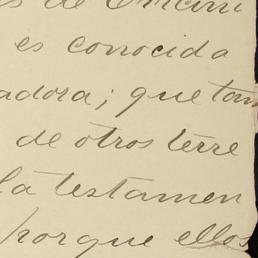 s de Encini
es conocida
adora; que tam
de otros terre
la testamen
porque ellos